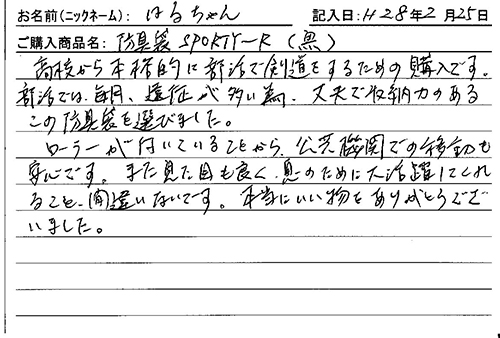 お名前(ニックネーム): はるちゃん 記入日:H28年2月25日
ご購入商品名: 防具袋 SPORTY-R (黒)
高校から本格的に部活で剣道をするための購入です。
部活では、毎月、遠征が多い為、丈夫で収納力のある
この防具袋を選びました。
ローラーが付いていることから、公共機関での移動も
安心です。また見た目も良く、息のために大活躍してくれ
ること、間違いないです。本当にいい物をありがとうござ
いました。